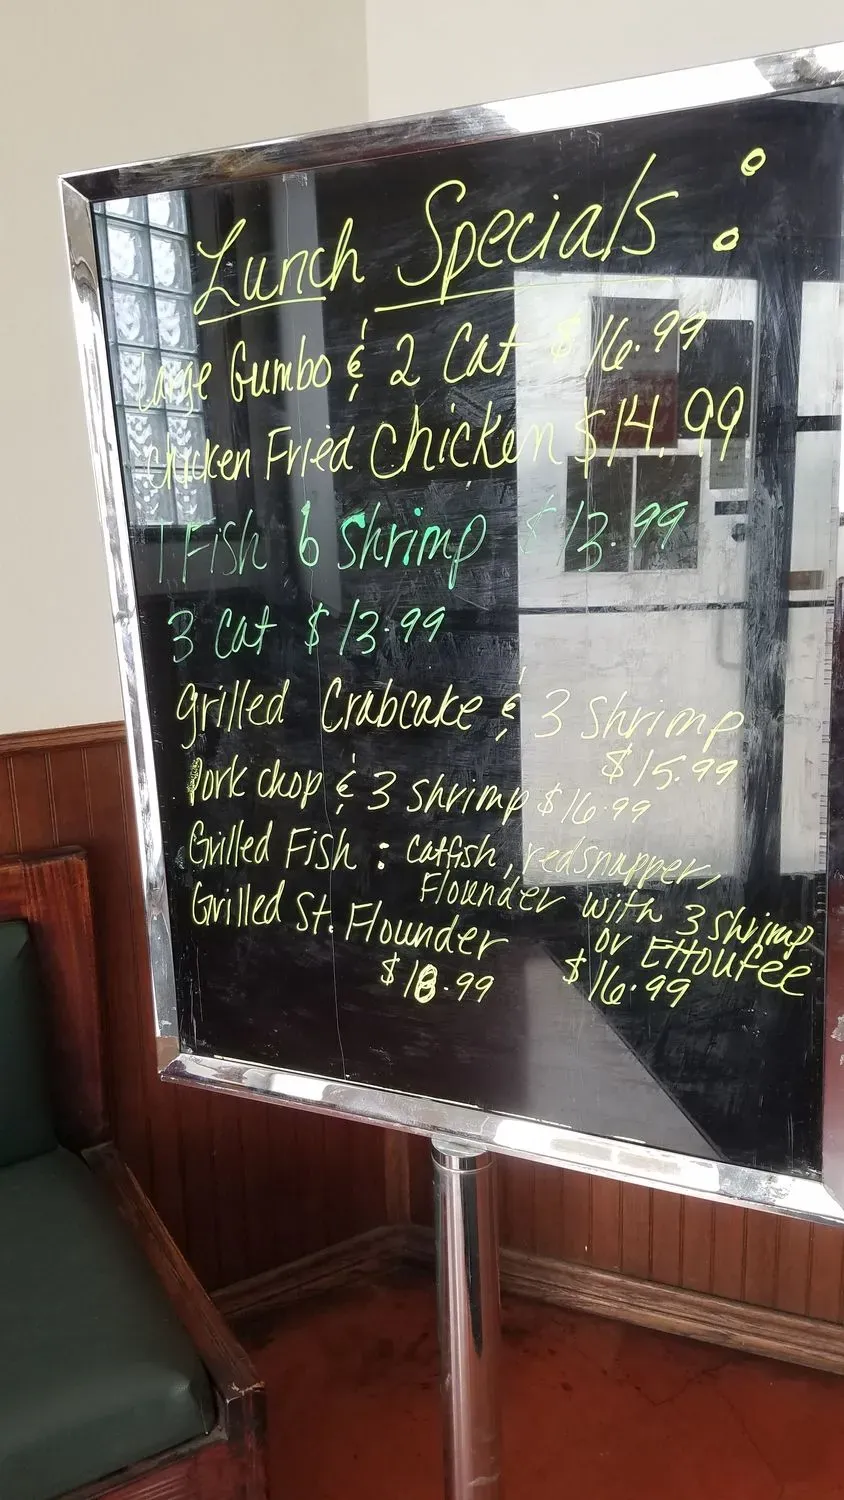 Lunch Specials :
Large Gumbo & 2 Cat $16.99
Chicken Fried Chicken $14.99
1 Fish 6 Shrimp $13.99
3 Cat $13.99
Grilled Crabcake & 3 Shrimp
$15.99
Pork chop & 3 shrimp $16.99
Grilled Fish : Catfish, redsnapper,
Flounder with 3 shrimp
or Ettoufee
$16.99
Grilled St. Flounder
$18.99